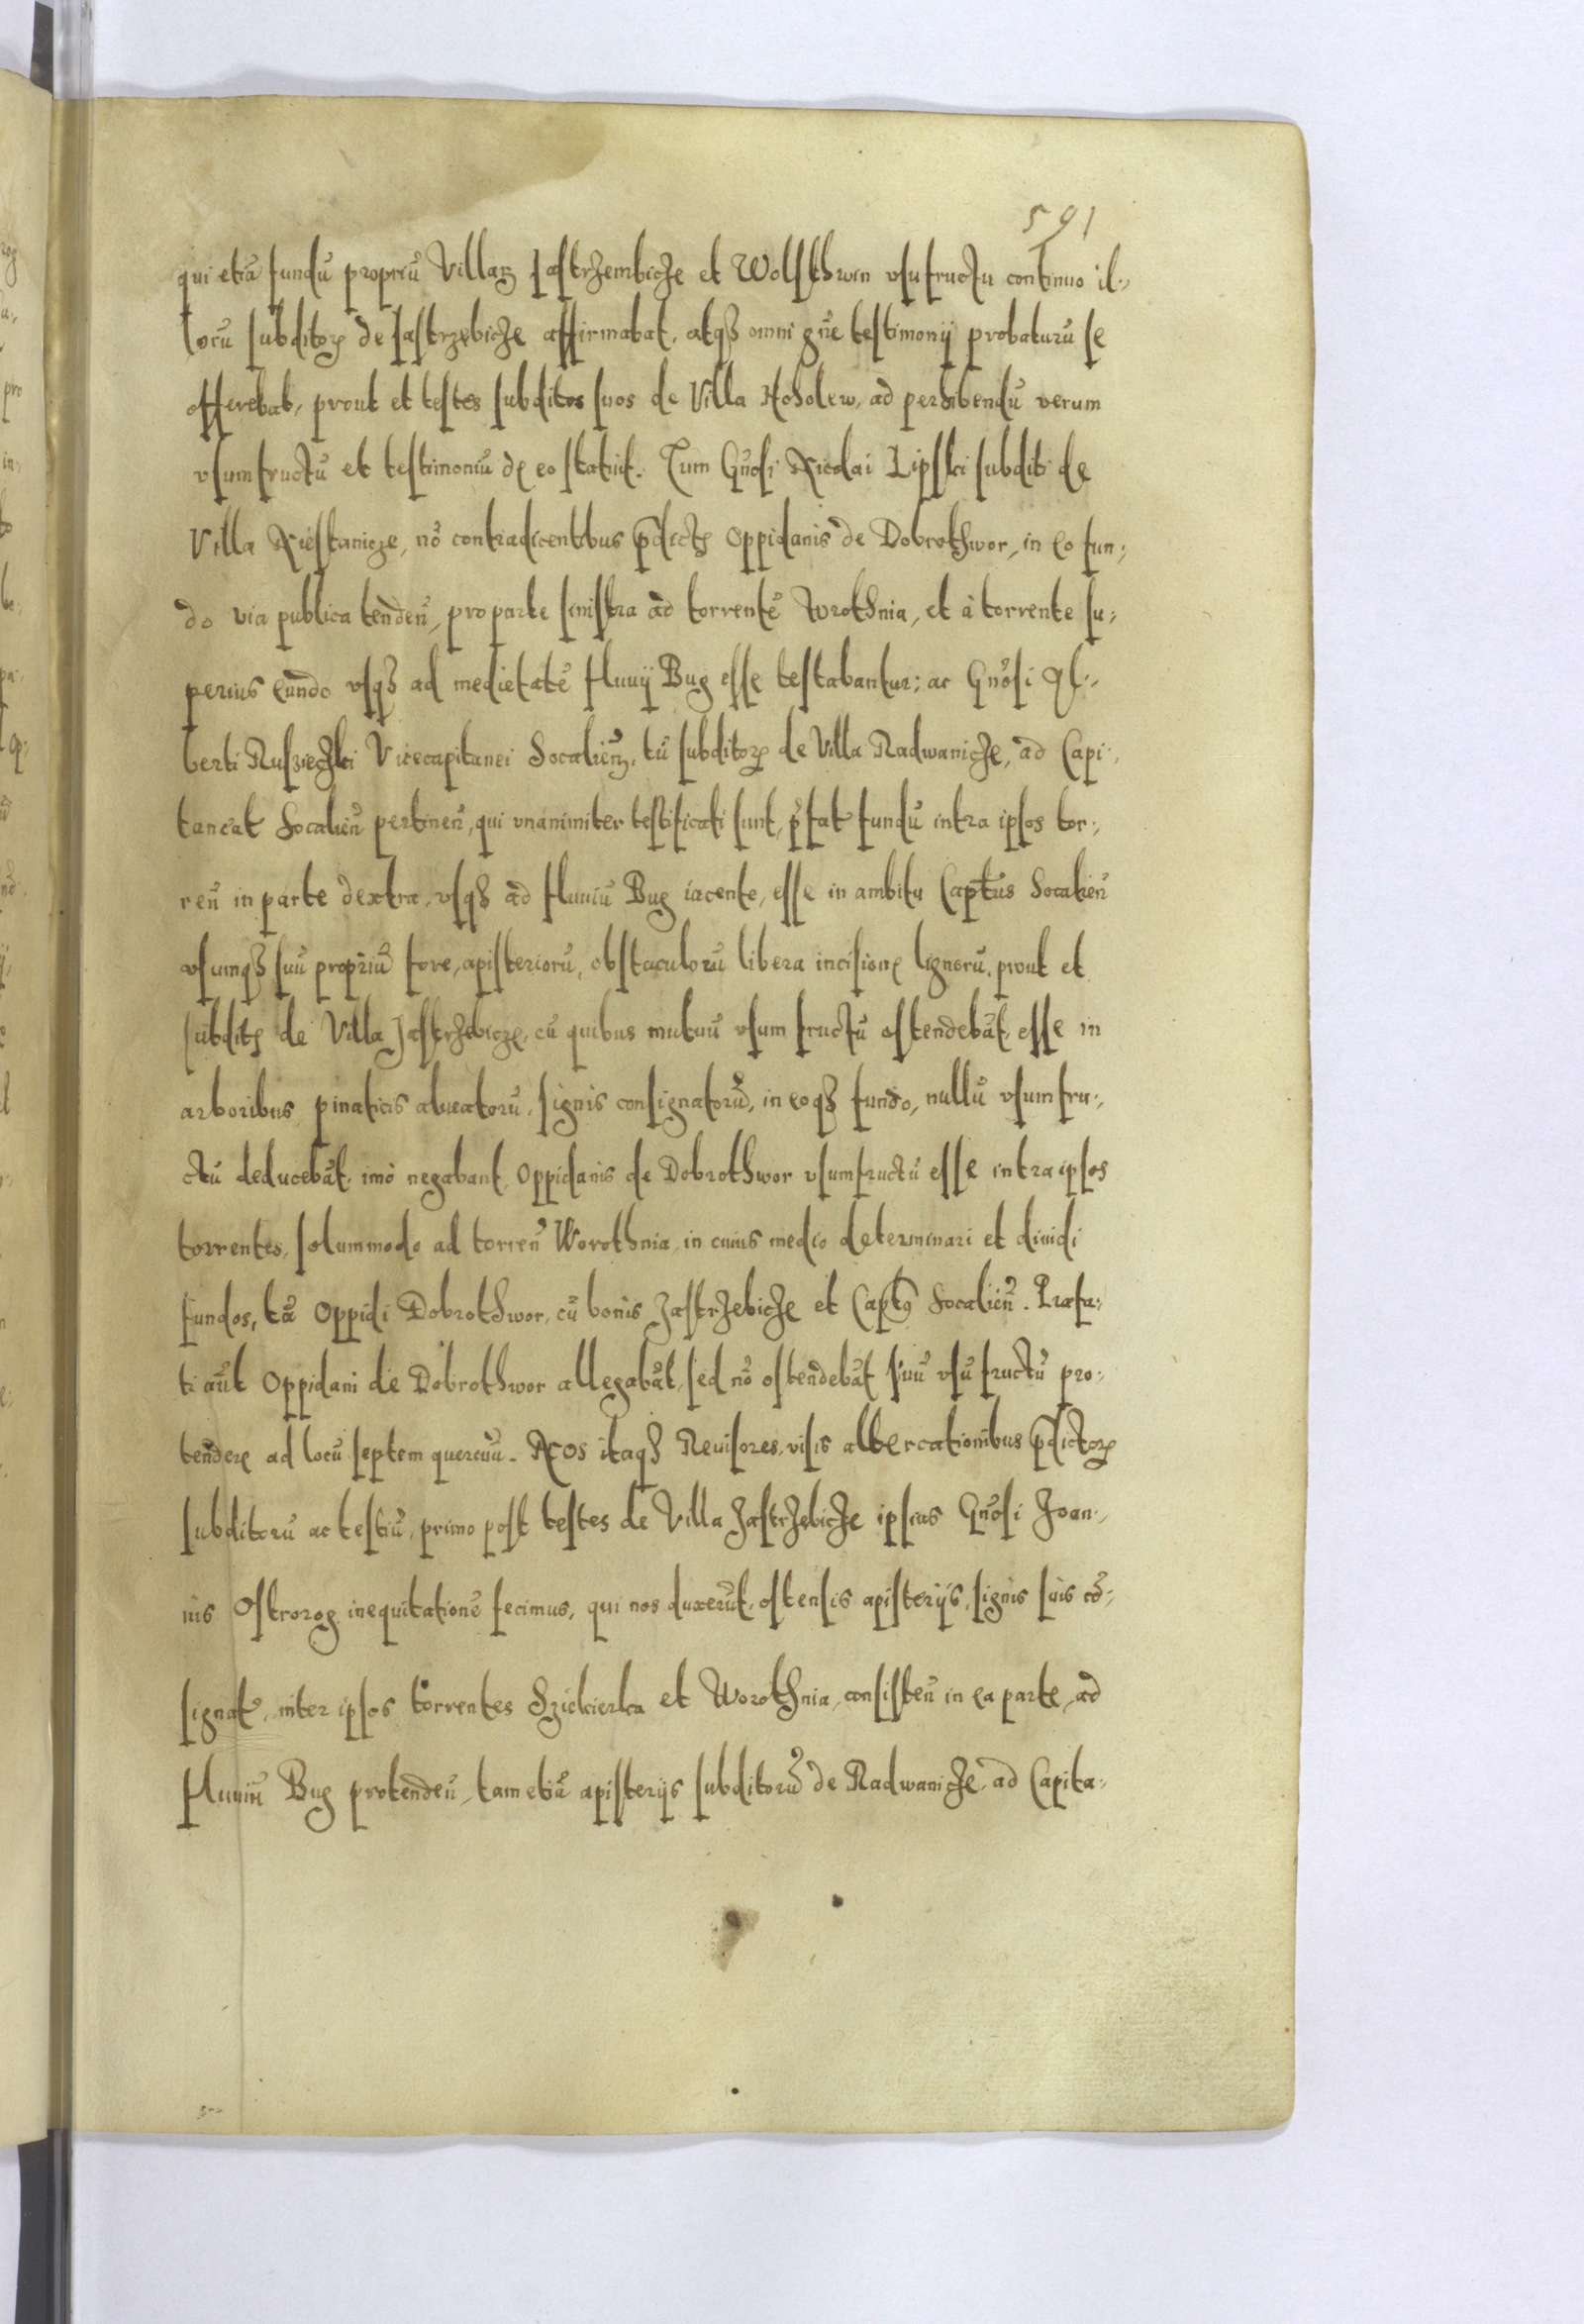 591
qui etiā fundū propriū Villarꝫ Jastrzembicze et Wolsthwin vsufructu continuo il⸗
lorū subditorꝫ de Jastrzębicze affirmabat, atqꝫ omni gñe testimonij probaturū se
offerebat, prout et testes subditos suos de Villa Hoholew, ad perhibendū verum
vsumfructū et testimoniū de eo statuit. Tum Gñosi Nicolai Lipski subditi de
Villa Niestanicze, nō contradicentibus p̄dictꝭ Oppidanis de Dobrothwor, in eo fun⸗
do via publica tendeñ, pro parte sinistra ad torrentē Wrothnia, et à torrente su⸗
perius eundo vsqꝫ ad medietatē fluuij Bug esse testabantur; ac Gñosi Al⸗
berti Rusieczki Vicecapitanei Socalieñ, tū subditorꝫ de Villa Radwanicze, ad Capi⸗
taneat Socalieñ pertineñ, qui vnanimiter testificati sunt, p̄fat fundū intra ipsos tor⸗
reñ in parte dextra, vsqꝫ ad fluuiū Bug iacente, esse in ambitu Capt̄us Socalieñ
vsumqꝫ suū propriū fore, apisteriorū, obstaculorū libera incisione lignorū, prout et
subditꝭ de Villa Jastrzebicze, cū quibus mutuū vsum fructū ostendebāt, esse in
arboribus pinaticis alueatorū, signis consignatorū, in eoqꝫ fundo, nullū vsumfru⸗
ctū deducebāt, imò negabant, Oppidanis de Dobrothwor vsumfructū esse intra ipsos
torrentes, solummodo ad torreñ Worothnia, in cuius medio determinari et diuidi
fundos, tā Oppidi Dobrothwor, cū bonis Jastrzebicze et Capt9 Socalieñ. Præfa⸗
ti aūt Oppidani de Dobrothwor allegabāt, sed nō ostendebāt suū vsūfructū pro⸗
tendere ad locū septem quercuū. Nos itaqꝫ Reuisores, visis altercationibus p̄dictorꝫ
subditorū ac testiū, primo post testes de Villa Jastrzebicze ipsius Gñosi Joan⸗
nis Ostrorog inequitationē fecimus, qui nos duxerūt, ostensis apisterijs, signis suis cō⸗
signat, inter ipsos torrentes Szickierka et Worothnia, consisteñ in ea parte, ad
fluuiū Bug protendeñ, tam etiā apisterijs subditorū de Radwanicze, ad Capita⸗